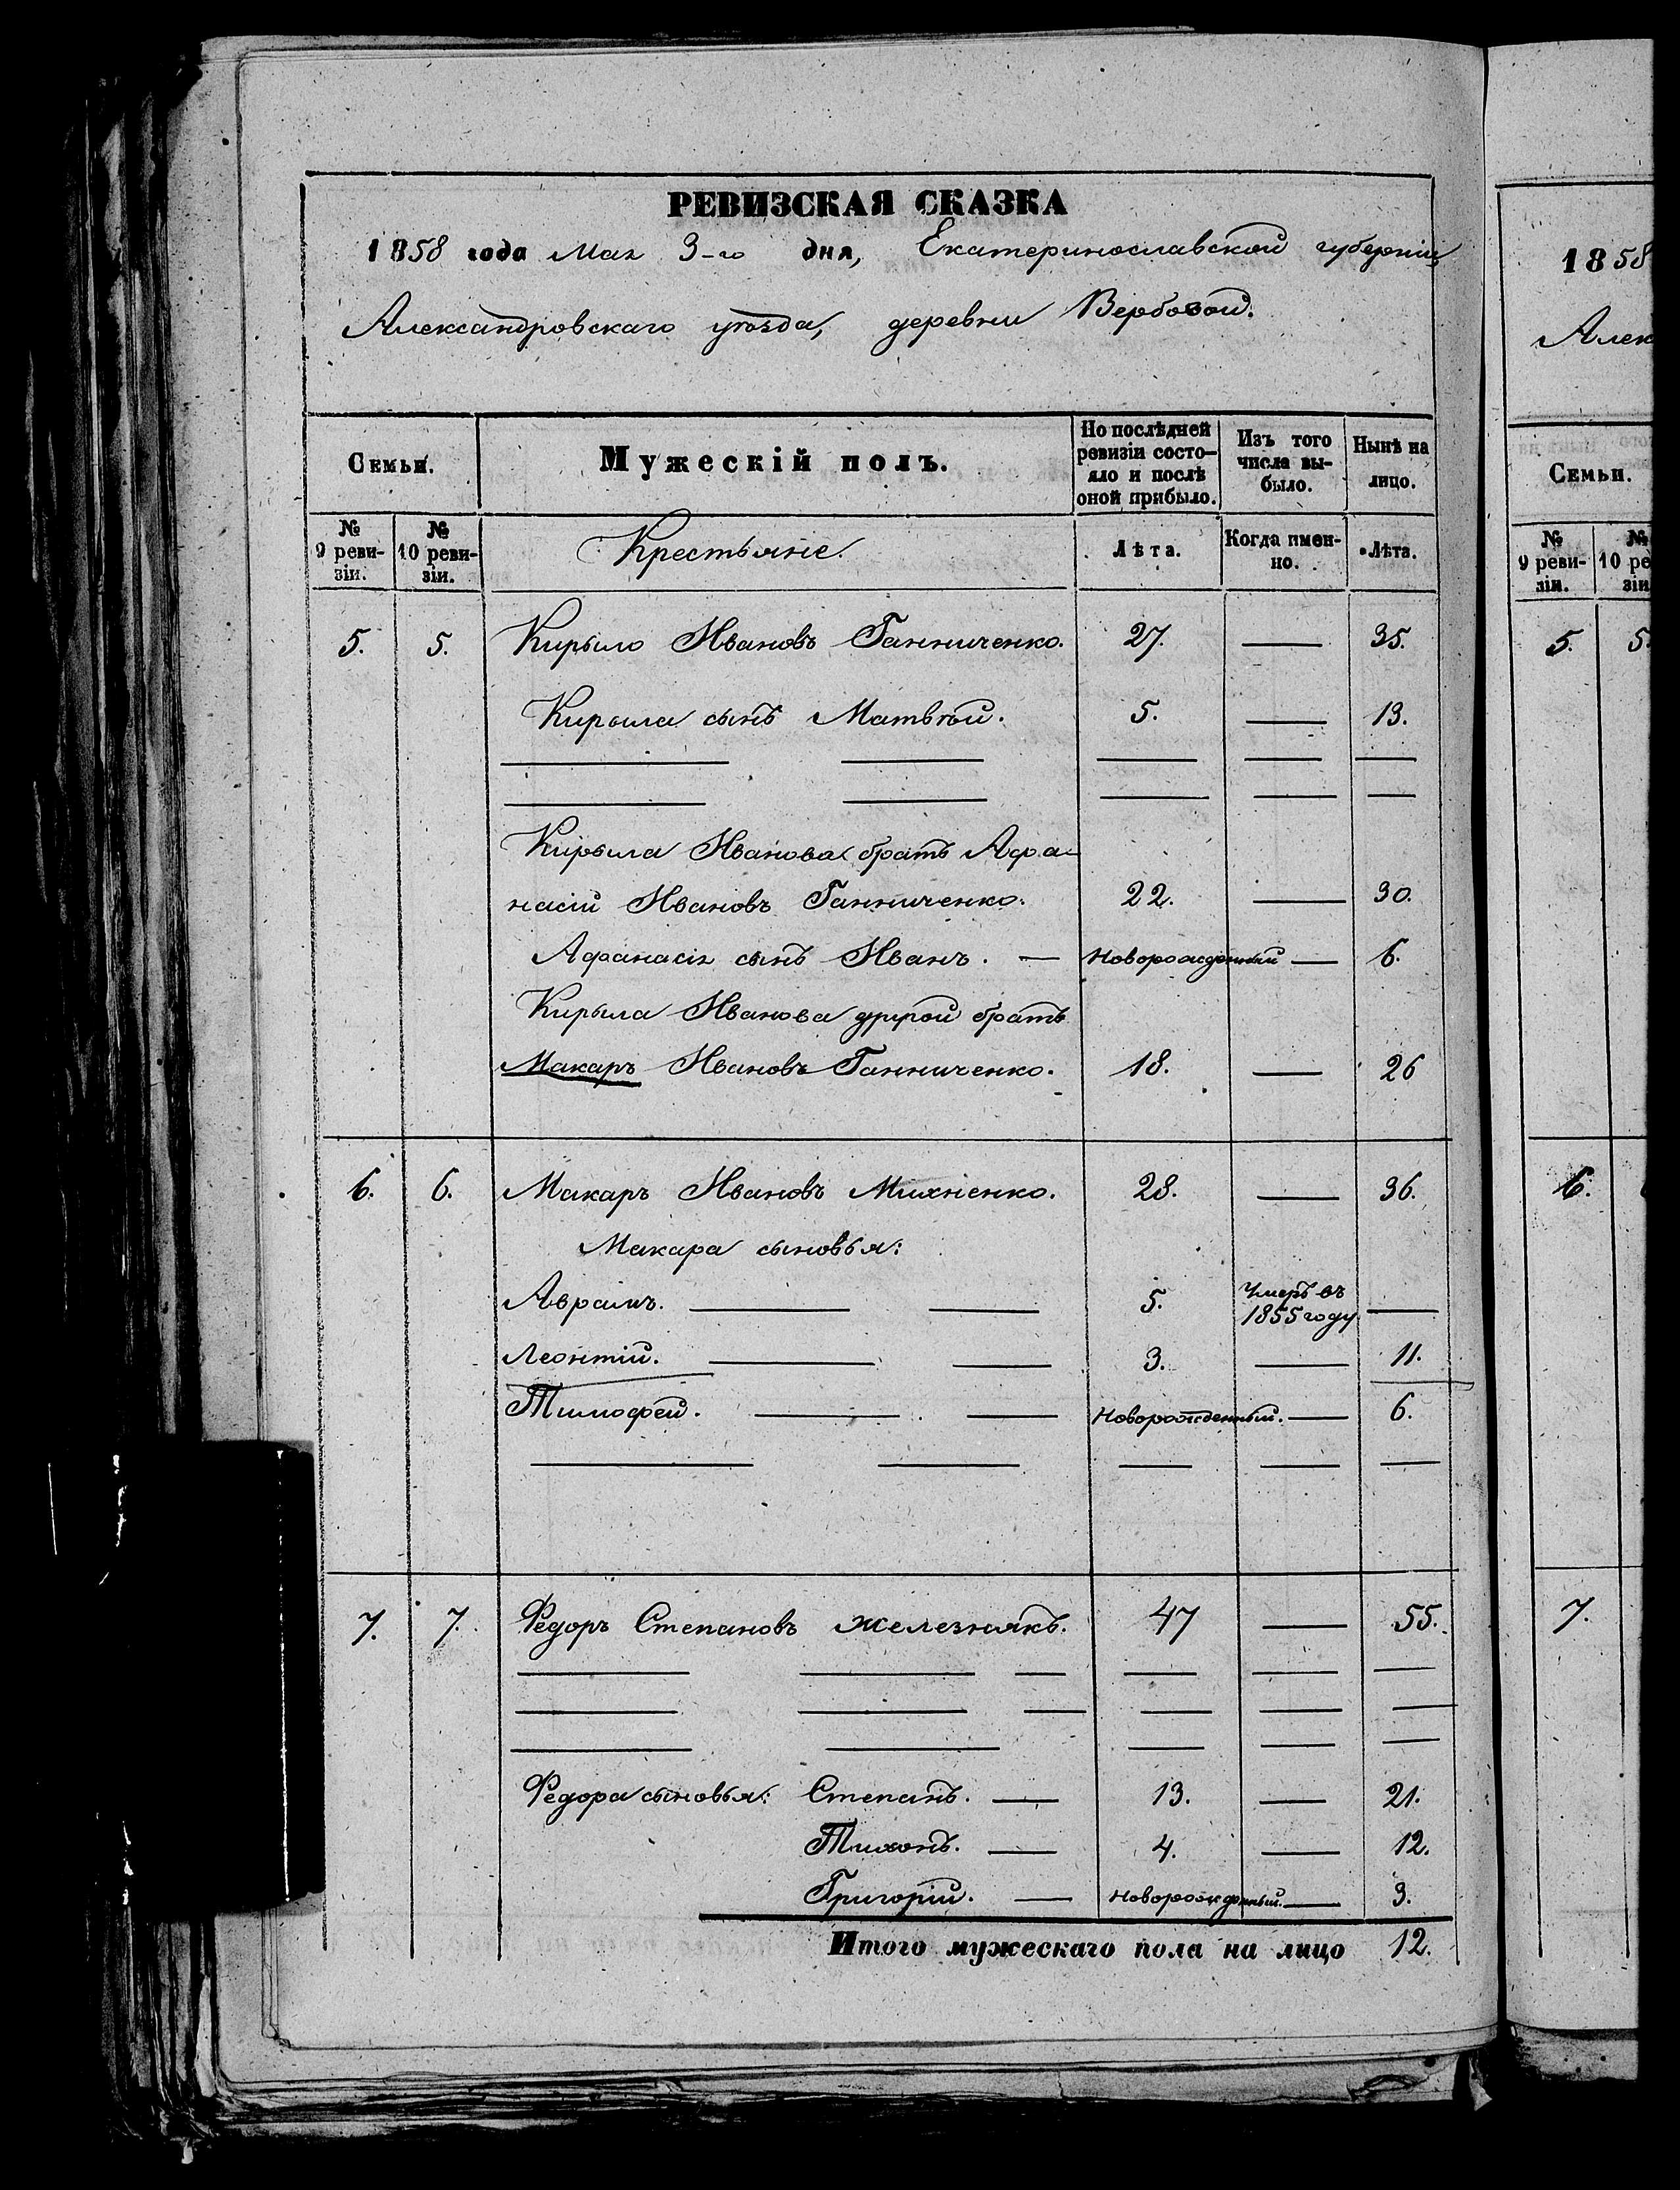 РЕВИЗСКАЯ СКАЗКА
1858 года Мая 3-го дня, Екатеринославской губерніи,
Александровскаго уѣзда, деревни Вербовой.
Семьи. Мужескій полъ. По послѣдней ревизіи состояло и послѣ оной прибыло. Изъ того числа выбыло. Нынѣ на лицо.
№ 9 ревизіи. № 10 ревизіи. Крестьяне. Лѣта. Когда именно. Лѣта.
5. 5. Кирыло Ивановъ Ганниченко. 27. — 35.
Кирыла сынъ Матвѣй. 5. — 13.
Кирыла Иванова братъ Афа-
насій Ивановъ Ганниченко. 22. — 30.
Афанасія сынъ Иванъ. — новорожденный — 6.
Кирыла Иванова другой братъ
Макаръ Ивановъ Ганниченко. 18. — 26
6. 6. Макаръ Ивановъ Михніенко. 28. — 36.
Макара сыновья:
Аврамъ. — — 5. Умеръ въ 1855 году —
Леонтій. — — 3. — 11.
Тимофей. — — новорожденный. — 6.
7. 7. Федоръ Степановъ железнякъ. 47 — 55.
Федора сыновья: Степанъ. — 13. — 21.
Тихонъ. — 4. — 12.
Григорій. — новорожденный. — 3.
Итого мужескаго пола на лицо 12.
1858
Алек
Семьи.
№ 9 ревизіи. № 10 ре
зіи
5. 5.
6.
7.